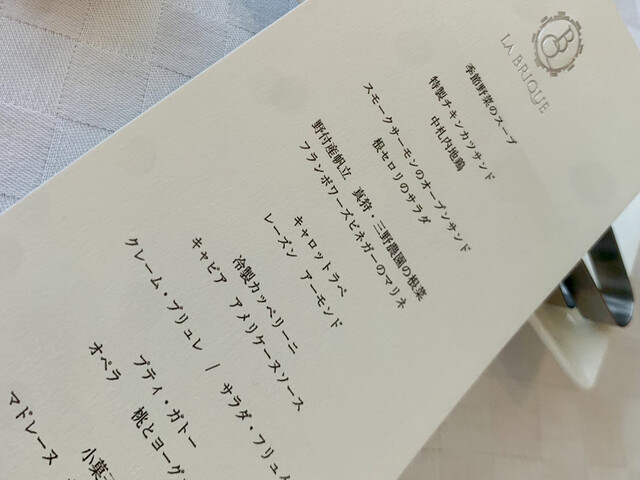 LA BRIQUE
季節野菜のスープ
特製チキンカツサンド
中札内地鶏
スモークサーモンのオープンサンド
根セロリのサラダ
野付産帆立 真狩・三野農園の根菜
フランボワーズビネガーのマリネ
キャロットラペ
レーズン アーモンド
冷製カッペリーニ
キャビア アメリケーヌソース
クレーム・ブリュレ | サラダ・フリュ
プティ・ガトー
オペラ 桃とヨーグ
小菓
マドレーヌ